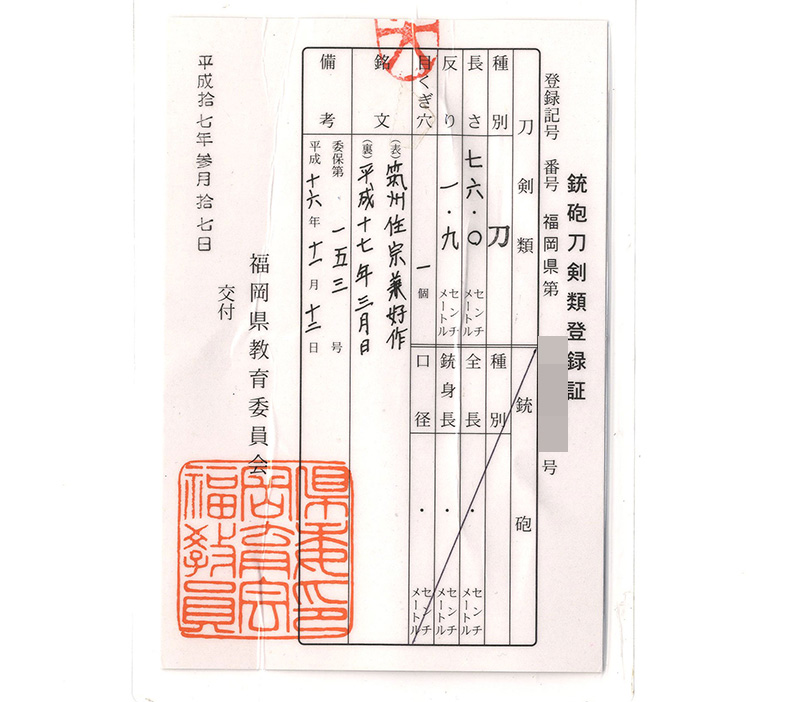 銃砲刀剣類登録証
登録記号 番号 福岡県第 号
刀剣類
種別 刀
長さ 七六・〇 センチメートル
反り 一・九 センチメートル
目くぎ穴 一個
銘文
(表)筑州住宗兼好作
(裏)平成十七年三月日
備考
委保第 一五三 号
平成十六年十一月十二日
銃砲
種別
全長 ・ センチメートル
銃身長 ・ センチメートル
口径 ・ センチメートル
福岡県教育委員会
交付
平成拾七年参月拾七日
県委印
岡育会
福教員